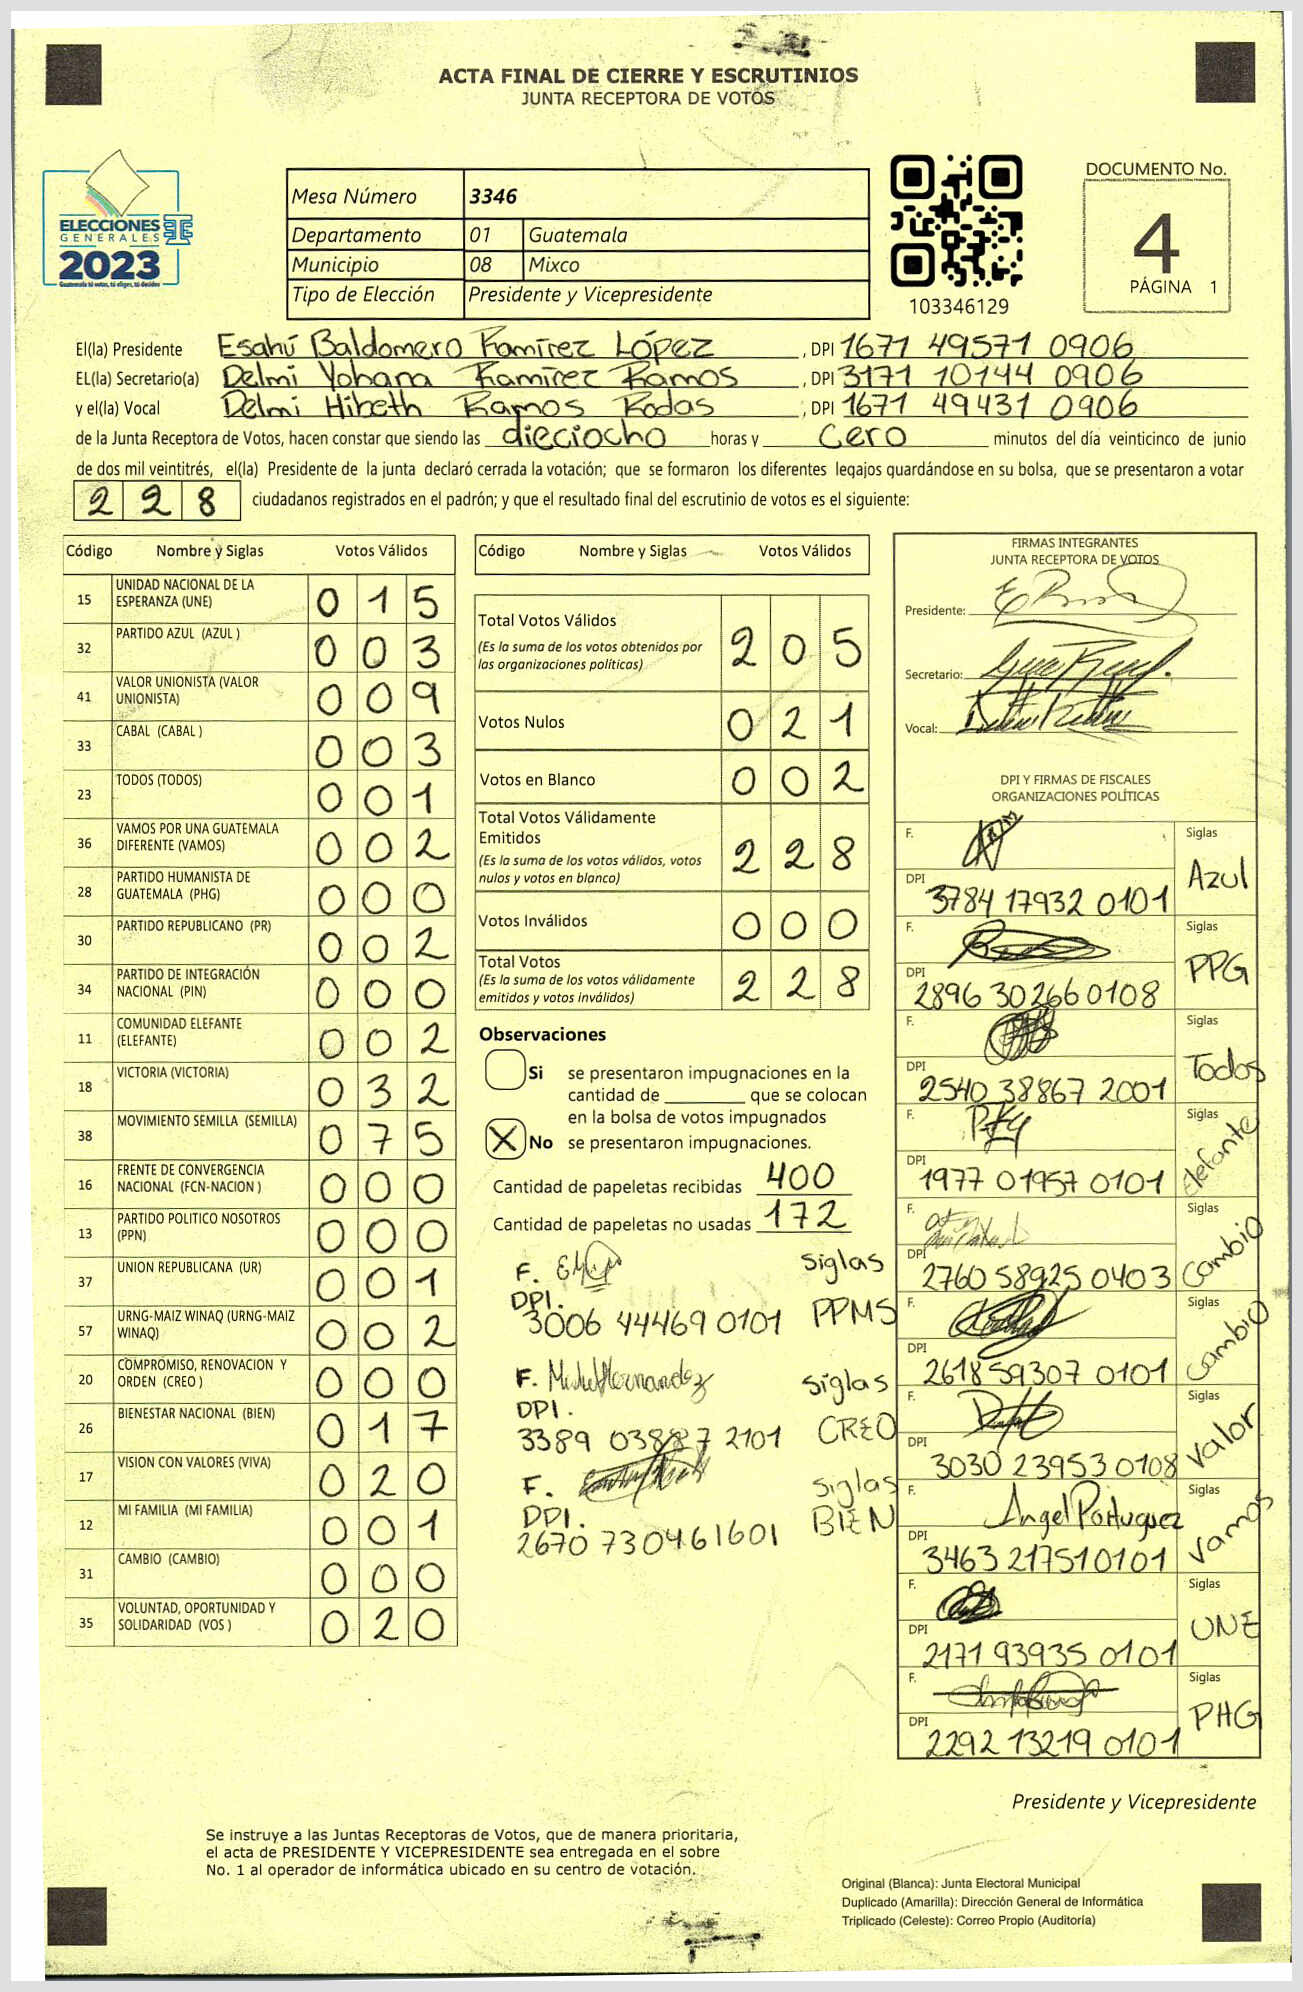 ACTA FINAL DE CIERRE Y ESCRUTINIOS
JUNTA RECEPTORA DE VOTOS
ELECCIONES
GENERALES
2023
Guatemala tú votas, tú eliges, tú decides
Mesa Número 3346
Departamento 01 Guatemala
Municipio 08 Mixco
Tipo de Elección Presidente y Vicepresidente
103346129
DOCUMENTO No.
4
PÁGINA 1
El(la) Presidente Esahí Baldomero Ramírez López , DPI 1671 49571 0906
EL(la) Secretario(a) Delmi Yohana Ramírez Ramos , DPI 3171 10144 0906
y el(la) Vocal Delmi Hibeth Ramos Rodas , DPI 1671 49431 0906
de la Junta Receptora de Votos, hacen constar que siendo las dieciocho horas y cero minutos del día veinticinco de junio
de dos mil veintitrés, el(la) Presidente de la junta declaró cerrada la votación; que se formaron los diferentes legajos guardándose en su bolsa, que se presentaron a votar
228 ciudadanos registrados en el padrón; y que el resultado final del escrutinio de votos es el siguiente:
Código Nombre y Siglas Votos Válidos
15 UNIDAD NACIONAL DE LA ESPERANZA (UNE) 015
32 PARTIDO AZUL (AZUL ) 003
41 VALOR UNIONISTA (VALOR UNIONISTA) 009
33 CABAL (CABAL ) 003
23 TODOS (TODOS) 001
36 VAMOS POR UNA GUATEMALA DIFERENTE (VAMOS) 002
28 PARTIDO HUMANISTA DE GUATEMALA (PHG) 000
30 PARTIDO REPUBLICANO (PR) 002
34 PARTIDO DE INTEGRACIÓN NACIONAL (PIN) 000
11 COMUNIDAD ELEFANTE (ELEFANTE) 002
18 VICTORIA (VICTORIA) 032
38 MOVIMIENTO SEMILLA (SEMILLA) 075
16 FRENTE DE CONVERGENCIA NACIONAL (FCN-NACION ) 000
13 PARTIDO POLITICO NOSOTROS (PPN) 000
37 UNION REPUBLICANA (UR) 001
57 URNG-MAIZ WINAQ (URNG-MAIZ WINAQ) 002
20 COMPROMISO, RENOVACION Y ORDEN (CREO ) 000
26 BIENESTAR NACIONAL (BIEN) 017
17 VISION CON VALORES (VIVA) 020
12 MI FAMILIA (MI FAMILIA) 001
31 CAMBIO (CAMBIO) 000
35 VOLUNTAD, OPORTUNIDAD Y SOLIDARIDAD (VOS ) 020
Código Nombre y Siglas Votos Válidos
Total Votos Válidos 205
(Es la suma de los votos obtenidos por
las organizaciones políticas)
Votos Nulos 021
Votos en Blanco 002
Total Votos Válidamente
Emitidos 228
(Es la suma de los votos válidos, votos
nulos y votos en blanco)
Votos Inválidos 000
Total Votos 228
(Es la suma de los votos válidamente
emitidos y votos inválidos)
Observaciones
Si se presentaron impugnaciones en la
cantidad de ________ que se colocan
en la bolsa de votos impugnados
X No se presentaron impugnaciones.
Cantidad de papeletas recibidas 400
Cantidad de papeletas no usadas 172
F. Siglas
DPI.
3006 44469 0101 PPMS
F. Hernandez Siglas
DPI.
3389 03887 2101 CREO
F. Siglas
DPI. BIEN
2670 73046 1601
FIRMAS INTEGRANTES
JUNTA RECEPTORA DE VOTOS
Presidente:
Secretario:
Vocal:
DPI Y FIRMAS DE FISCALES
ORGANIZACIONES POLÍTICAS
F. Siglas
DPI 3784 17932 0101 Azul
F. Siglas
DPI 2896 30266 0108 PPG
F. Siglas
DPI 2540 38867 2001 Todos
F. Siglas
DPI 1977 01957 0101 elefante
F. Siglas
DPI 2760 58925 0403 Cambio
F. Siglas
DPI 2618 59307 0101 Cambio
F. Siglas
DPI 3030 23953 0108 Valor
F. Angel Portuguez Siglas
DPI 3463 21751 0101 Vamos
F. Siglas
DPI 2171 93935 0101 UNE
F. Siglas
DPI 2292 13219 0101 PHG
Presidente y Vicepresidente
Se instruye a las Juntas Receptoras de Votos, que de manera prioritaria,
el acta de PRESIDENTE Y VICEPRESIDENTE sea entregada en el sobre
No. 1 al operador de informática ubicado en su centro de votación.
Original (Blanca): Junta Electoral Municipal
Duplicado (Amarilla): Dirección General de Informática
Triplicado (Celeste): Correo Propio (Auditoría)